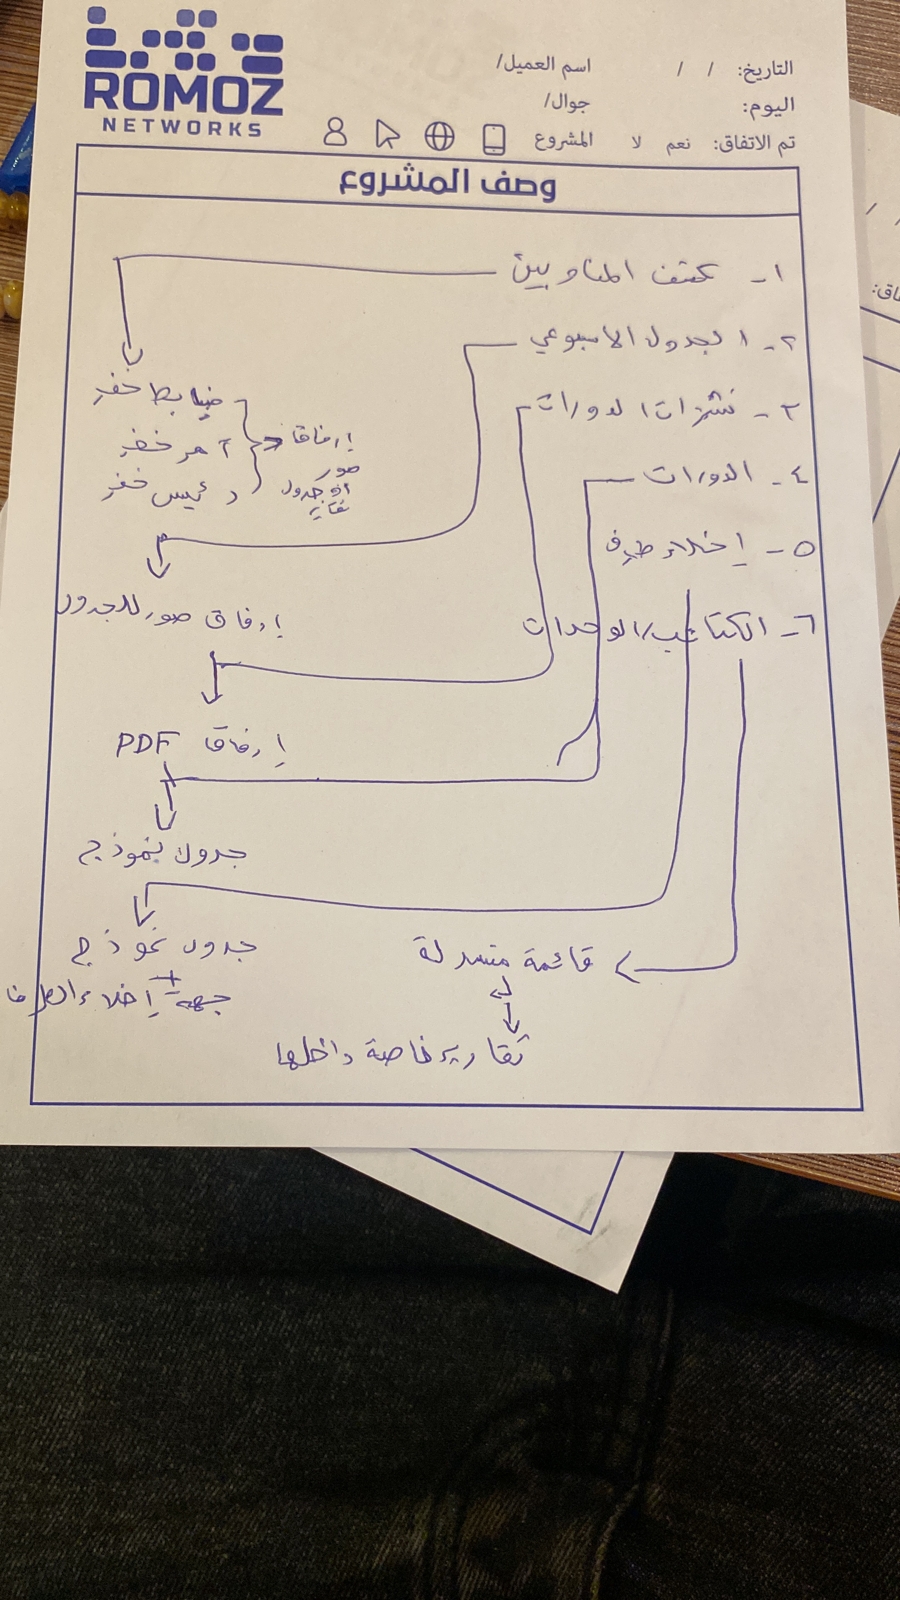 ROMOZ
NETWORKS
التاريخ: / / اسم العميل/
اليوم: جوال/
تم الاتفاق: نعم لا المشروع
وصف المشروع
١- كشف المناوبين
٢- الجدول الاسبوعي
٣- نشرات الدورات
٤- الدورات
٥- إخلاء طرف
٦- الكتائب/الوحدات
ضابط خفر
آمر خفر
رئيس خفر
إرفاق
صور
أو جدول
إرفاق صور للجدول
إرفاق PDF
جدول نموذج
جدول نموذج
+
جهة إخلاء الطرف
قائمة منسدلة
تقارير خاصة داخلها